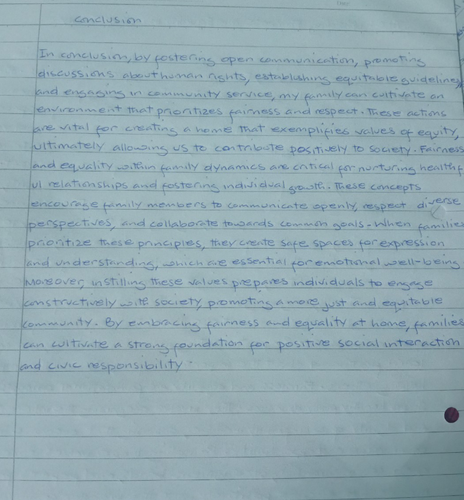 conclusion
In conclusion, by fostering open communication, promoting
discussions about human rights, establishing equitable guidelines,
and engaging in community service, my family can cultivate an
environment that prioritizes fairness and respect. These actions
are vital for creating a home that exemplifies values of equity,
ultimately allowing us to contribute positively to society. Fairness
and equality within family dynamics are critical for nurturing healthf
ul relationships and fostering individual growth. These concepts
encourage family members to communicate openly, respect diverse
perspectives, and collaborate towards common goals. When families
prioritize these principles, they create safe spaces for expression
and understanding, which are essential for emotional well-being.
Moreover, instilling these values prepares individuals to engage
constructively with society, promoting a more just and equitable
community. By embracing fairness and equality at home, families
can cultivate a strong foundation for positive social interaction
and civic responsibility.